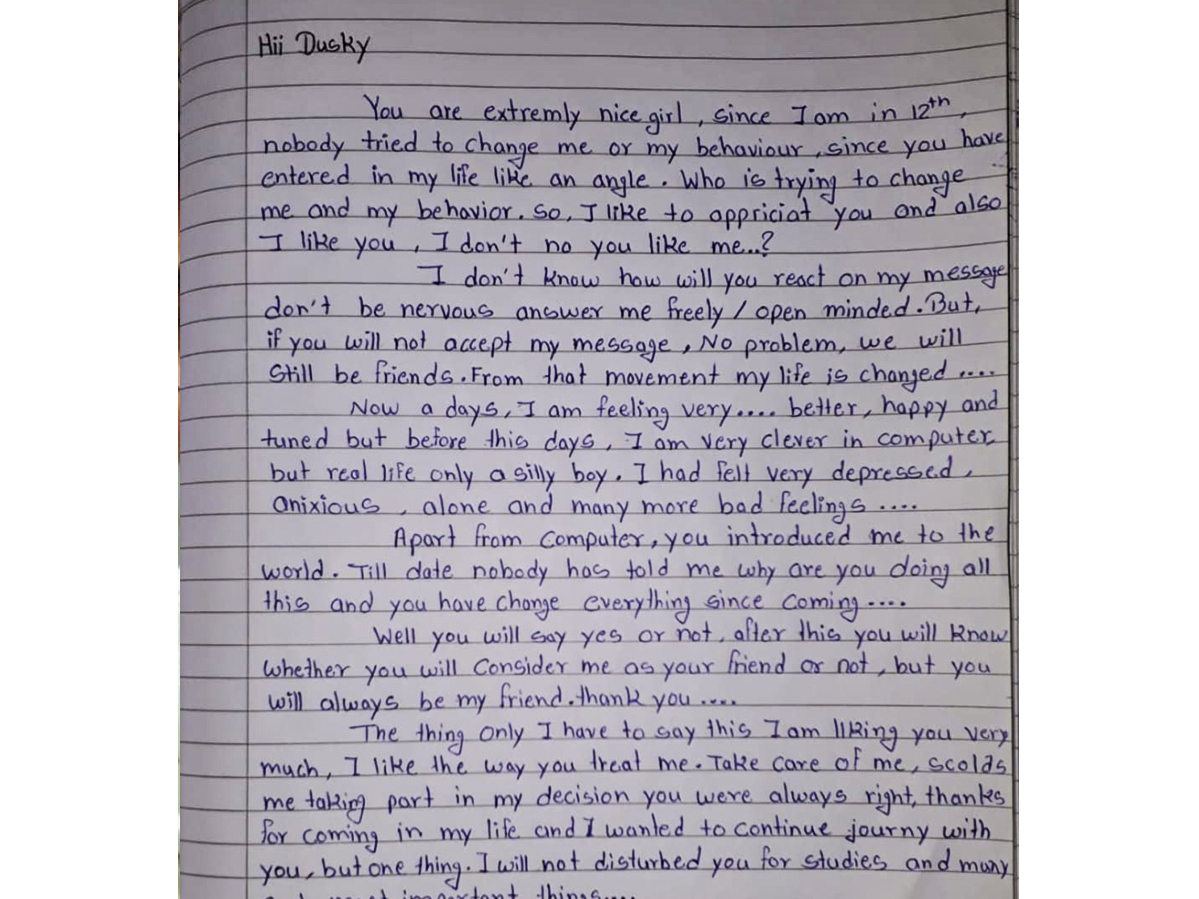 Hii Dusky
You are extremly nice girl, since I am in 12th,
nobody tried to change me or my behaviour, since you have
entered in my life like an angle. Who is trying to change
me and my behavior. So, I like to appriciat you and also
I like you, I don't no you like me..?
I don't know how will you react on my message
don't be nervous answer me freely / open minded. But,
if you will not accept my message, No problem, we will
Still be friends. From that movement my life is changed ....
Now a days, I am feeling very.... better, happy and
tuned but before this days, I am very clever in computer
but real life only a silly boy. I had felt very depressed,
anixious, alone and many more bad feelings ....
Apart from Computer, you introduced me to the
world. Till date nobody has told me why are you doing all
this and you have change everything since coming....
Well you will say yes or not, after this you will know
whether you will Consider me as your friend or not, but you
will always be my friend. thank you ....
The thing only I have to say this I am liking you very
much, I like the way you treat me. Take care of me, scolds
me taking part in my decision you were always right, thanks
for coming in my life and I wanted to continue journy with
you, but one thing. I will not disturbed you for studies and many
important things....